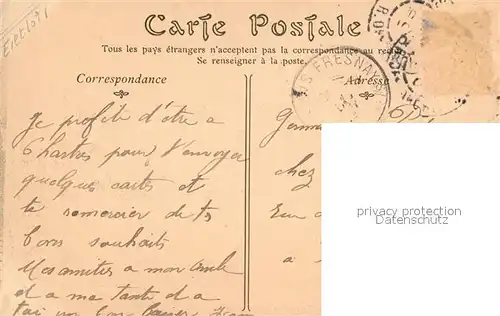 Carte Postale
Tous les pays étrangers n'acceptent pas la correspondance au
Se renseigner à la poste.
Correspondance
Adresse
FRESNAY
Je profite d'être a
Chartres pour t'envoyer
quelques cartes et
te remercier de tes
bons souhaits
Mes amitiés a mon oncle
et a ma tante et a
toi un bon baiser
chez
a
privacy protection
watermark